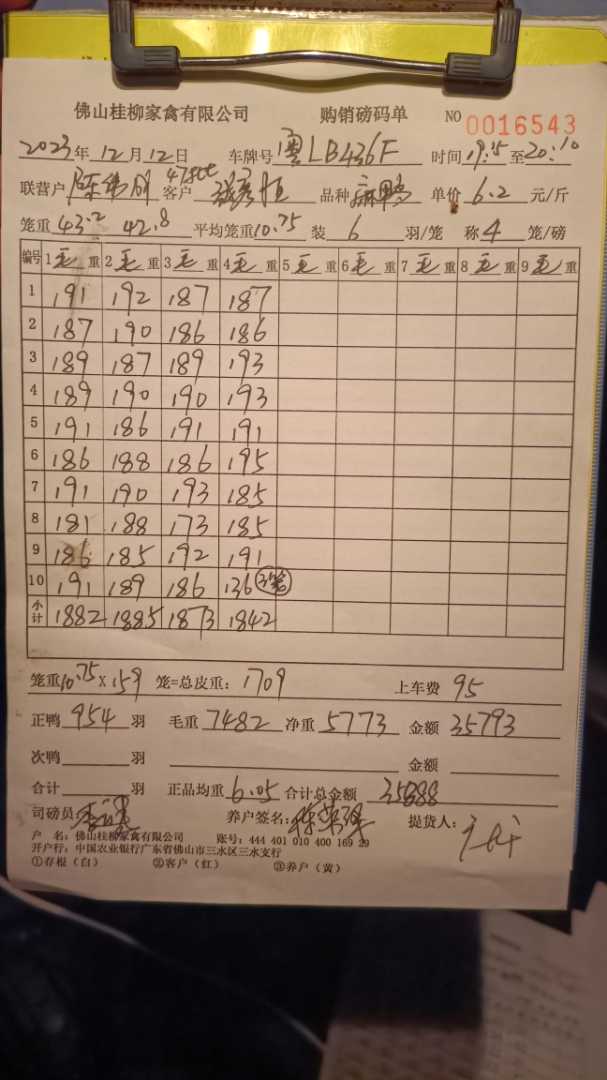 佛山桂柳家禽有限公司 购销磅码单 NO 0016543
2023年12月12日 车牌号 粤LB436F 时间 19:15至20:10
联营户 客户 品种 麻鸭 单价 6.2 元/斤
笼重 43.2 42.8 平均笼重 10.75 装 6 羽/笼 称 4 笼/磅
编号 1 毛 重 2 毛 重 3 毛 重 4 毛 重 5 毛 重 6 毛 重 7 毛 重 8 毛 重 9 毛 重
1 191 192 187 187
2 187 190 186 186
3 189 187 189 193
4 189 190 190 193
5 191 186 191 191
6 186 188 186 195
7 191 190 193 185
8 181 188 173 185
9 186 185 192 191
10 191 189 186 136 3笼
小计 1882 1885 1873 1842
笼重 10.75 X 159 笼=总皮重: 1709 上车费 95
正鸭 954 羽 毛重 7482 净重 5773 金额 35793
次鸭 羽 金额
合计 羽 正品均重 6.05 合计总金额 35888
司磅员: 养户签名: 提货人:
户 名: 佛山桂柳家禽有限公司 账号: 444 401 010 400 169 29
开户行: 中国农业银行广东省佛山市三水区三水支行
①存根(白) ②客户(红) ③养户(黄)